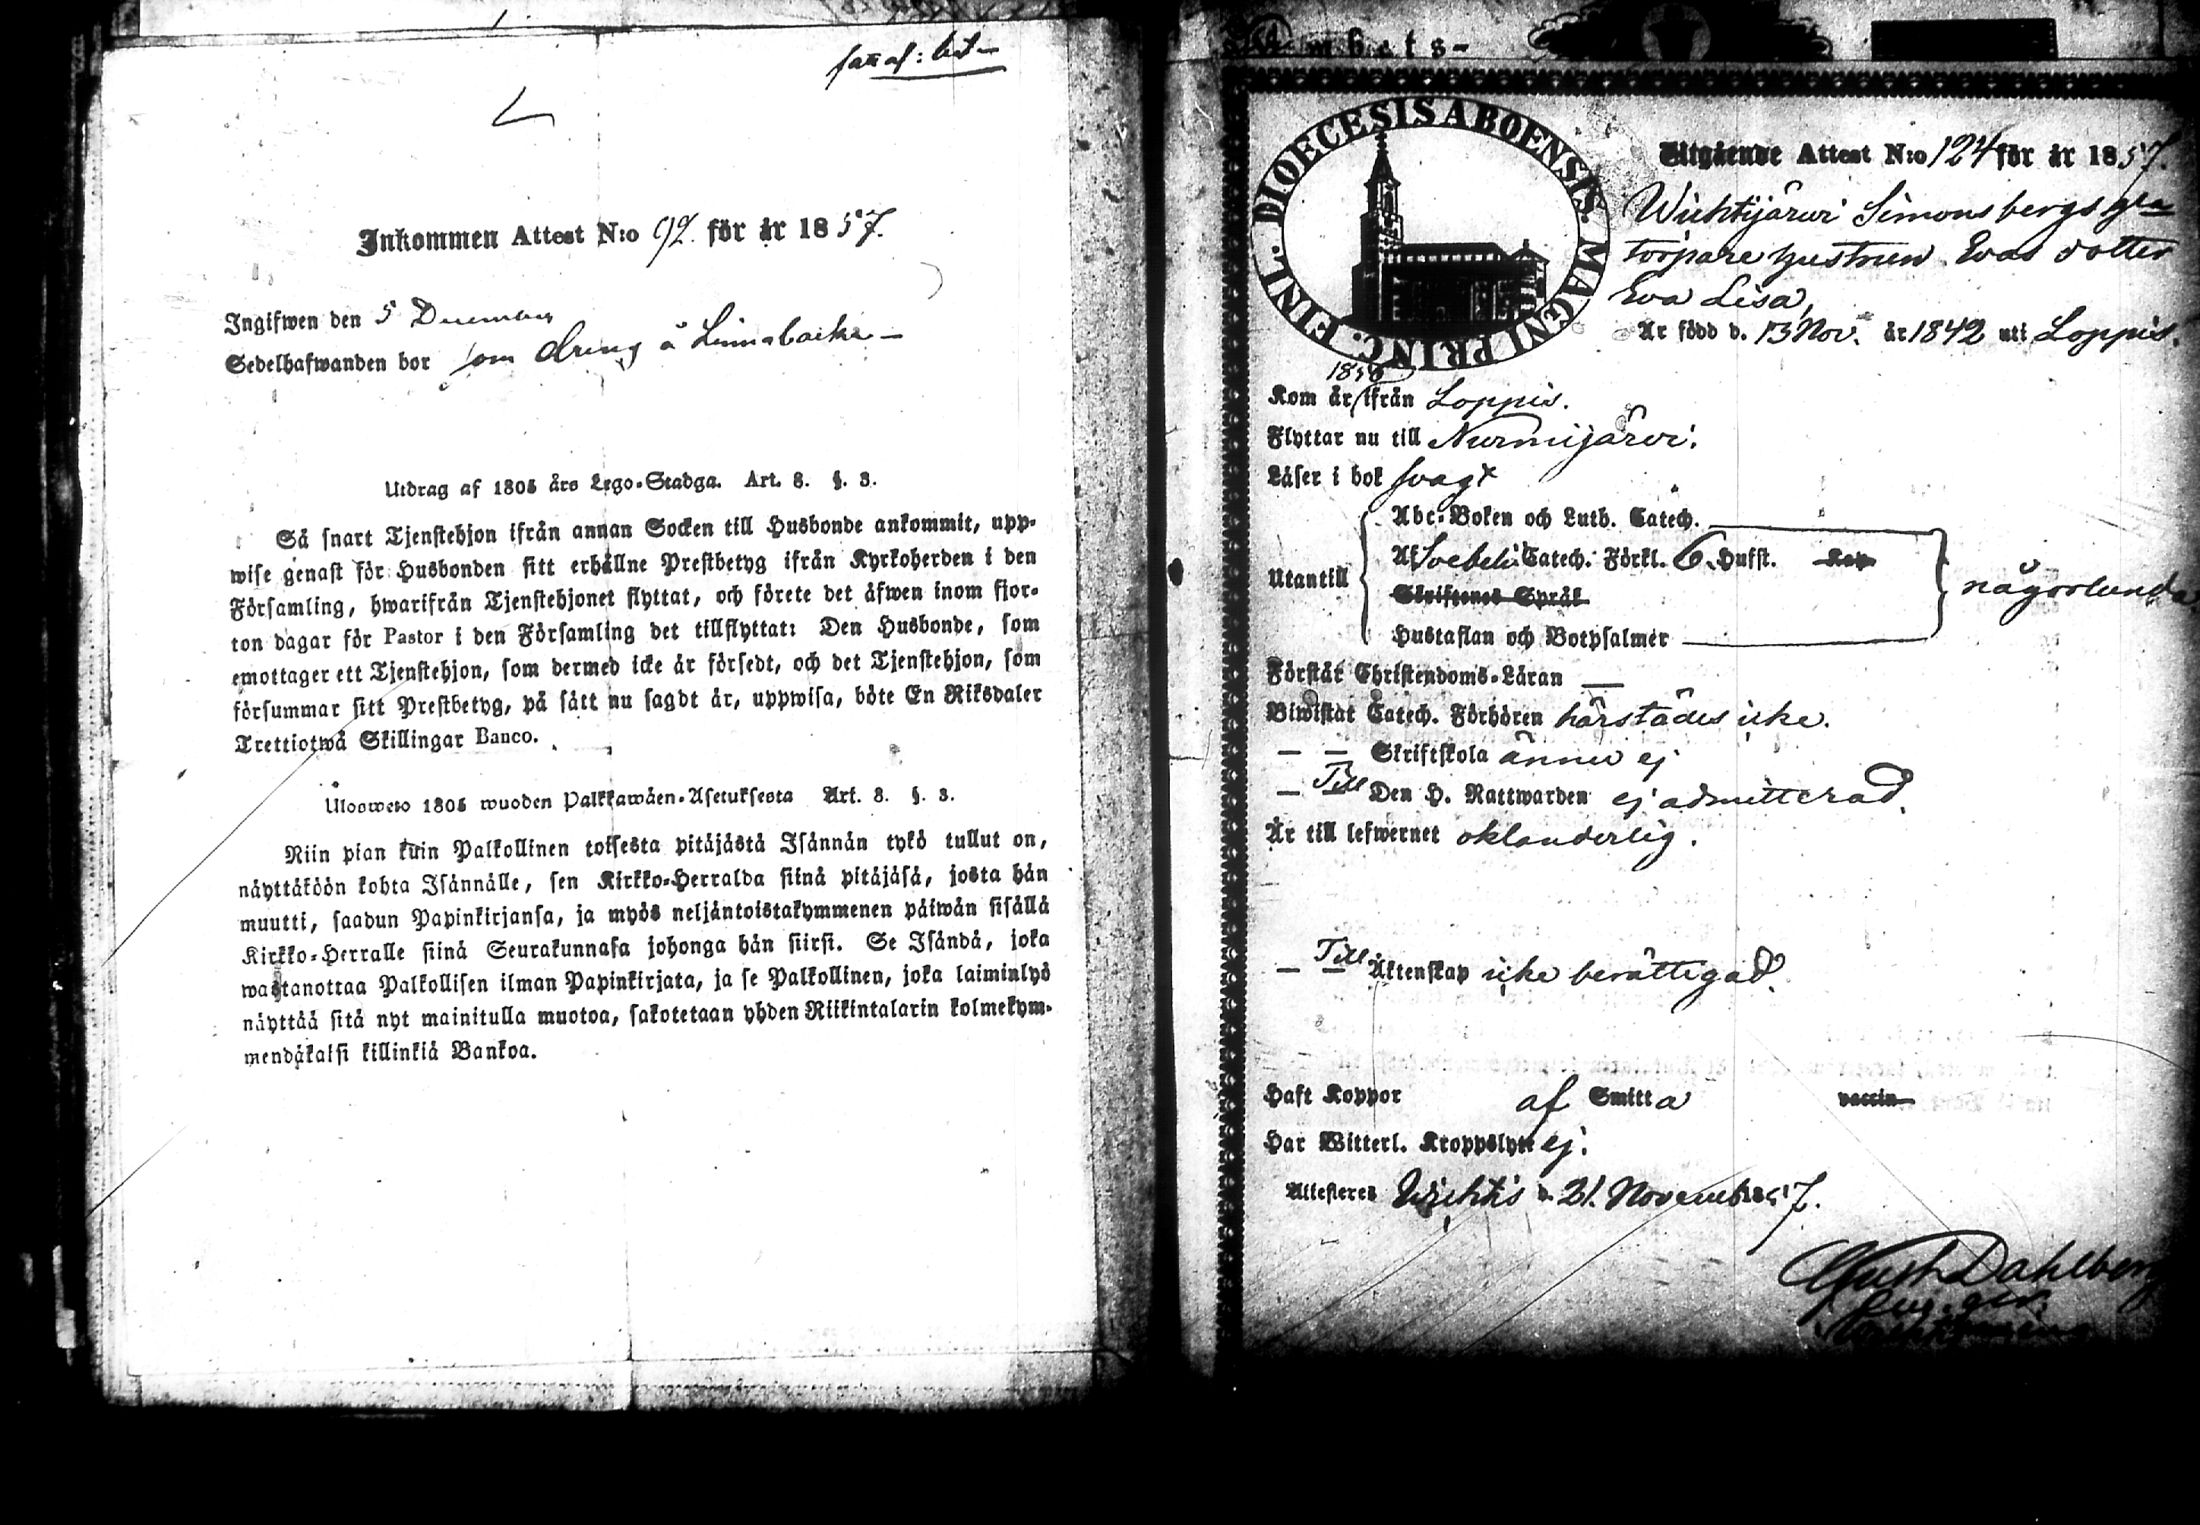 Inkommen Attest N:o 92 för år 1857.
Ingifwen den 5 December
Sedelhafwanden bor som dreng å Linnabacka —
Utdrag af 1805 års Lego-Stadga. Art. 8. §. 3.
Så snart Tjenstehjon ifrån annan Socken till Husbonde ankommit, upp-
wise genast för Husbonden sitt erhållne Prestbetyg ifrån Kyrkoherden i den
Församling, hwarifrån Tjenstehjonet flyttat, och förete det äfwen inom fjor-
ton dagar för Pastor i den Församling det tillflyttat: Den Husbonde, som
emottager ett Tjenstehjon, som dermed icke är försedt, och det Tjenstehjon, som
försummar sitt Prestbetyg, på sätt nu sagdt är, uppwisa, böte En Riksdaler
Trettiotwå Skillingar Banco.
Uloswedo 1805 wuoden Palkkawäen-Asetuksesta Art. 8. §. 3.
Niin pian kuin Palkollinen toisesta pitäjästä Isännän tykö tullut on,
näyttäköön kohta Isännälle, sen Kirkko-Herralda siinä pitäjäsä, josta hän
muutti, saadun Papinkirjansa, ja myös neljäntoistakymmenen päiwän sisällä
Kirkko-Herralle siinä Seurakunnasa johonga hän siirsi. Se Isändä, joka
wastanottaa Palkollisen ilman Papinkirjata, ja se Palkollinen, joka laiminlyö
näyttää sitä nyt mainitulla muotoa, sakotetaan yhden Riikintalarin kolmekym-
mendäkaksi killinkiä Bankoa.
mbets-
DIOECESIS ABOENSIS. MAGNI PRINC. FINL.
Utgående Attest N:o 124 för år 1857.
Wichtijärwi Simonsbergs
torpare hustrun Evas dotter
Eva Lisa,
Är född d. 13 Nov. år 1842 uti Loppis.
1856
Kom år ifrån Loppis.
Flyttar nu till Nurmijärvi.
Läser i bok svagt
Abc-Boken och Luth. Catech.
Utantill Af Svebelii Catech. Förkl. 6. Hufst. Kap
någorlunda
Skriftenes Språk
Hustaflan och Botpsalmer
Förstår Christendoms-Läran —
Biwistat Catech. Förhören härstädes icke.
— — Skriftskola ännu ej
— Till Den H. Nattwarden ej admitterad.
Är till lefwernet oklanderlig.
— Till Äktenskap icke berättigad.
Haft Koppor af Smitta vaccin
Har Witterl. Kroppslyte ej.
Attesteres Wichtis d. 21. November 1857.
Gust Dahlberg